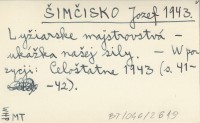 ŠIMČISKO Jozef 1943.
Lyžiarske majstrovstvá –
ukážka našej sily. – W po
zycji: Celoštatne 1943 (s. 41-
-42).
MT